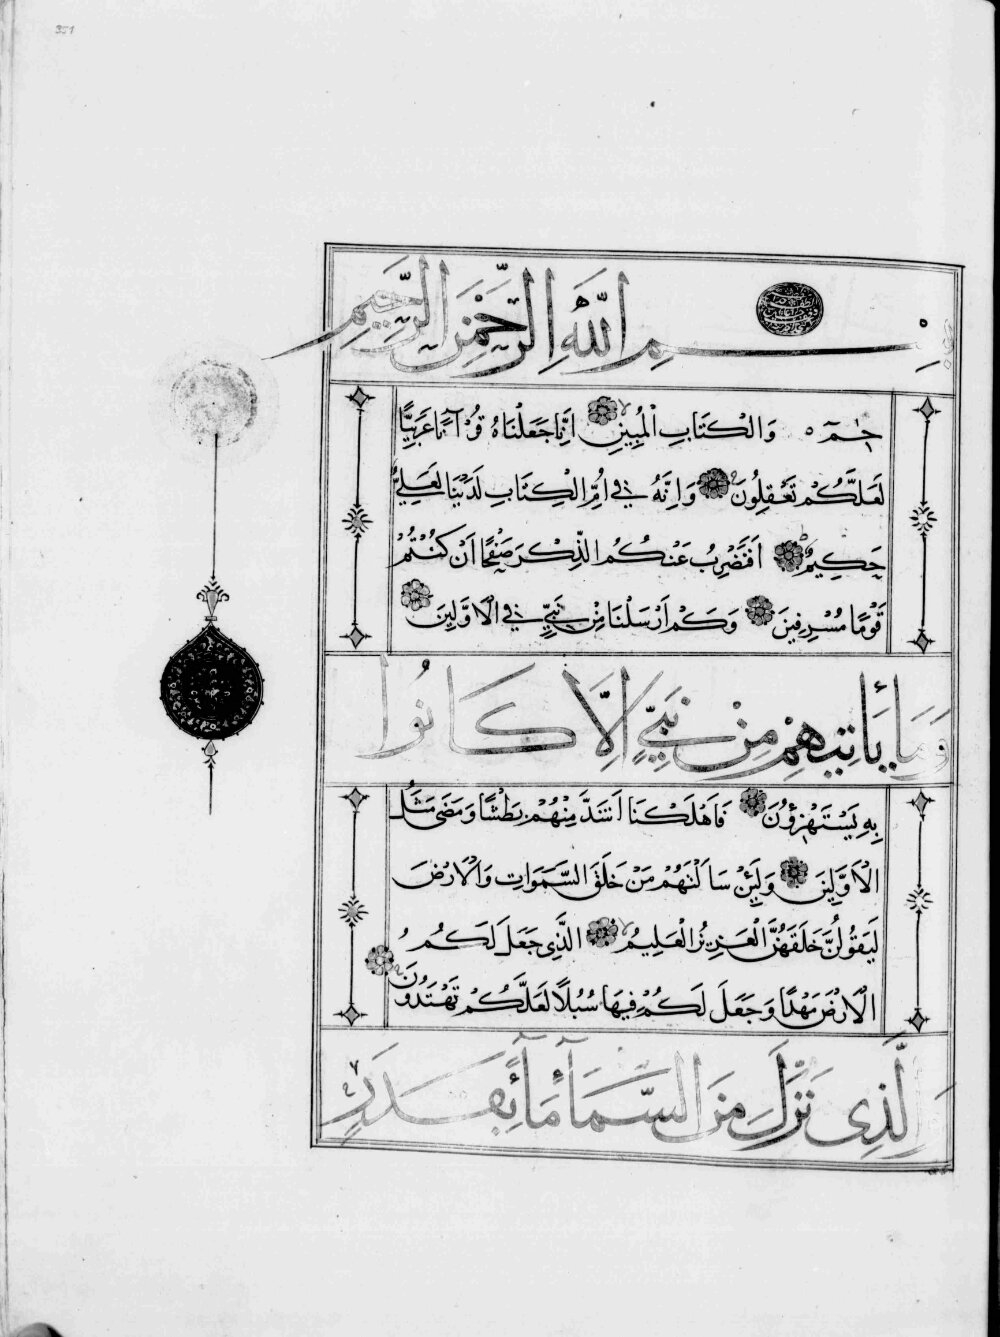 351
بِسْمِ اللَّهِ الرَّحْمٰنِ الرَّحِيمِ
حٰمٓ ۝ وَالْكِتَابِ الْمُبِينِ ۝ اِنَّا جَعَلْنَاهُ قُرْآنًا عَرَبِيًّا
لَعَلَّكُمْ تَعْقِلُونَ ۝ وَاِنَّهُ فِي اُمِّ الْكِتَابِ لَدَيْنَا لَعَلِيٌّ
حَكِيمٌ ۝ اَفَنَضْرِبُ عَنْكُمُ الذِّكْرَ صَفْحًا اَنْ كُنْتُمْ
قَوْمًا مُسْرِفِينَ ۝ وَكَمْ اَرْسَلْنَا مِنْ نَبِيٍّ فِي الْاَوَّلِينَ ۝
وَمَا يَأْتِيهِمْ مِنْ نَبِيٍّ اِلَّا كَانُوا
بِهِ يَسْتَهْزِؤُنَ ۝ فَاَهْلَكْنَا اَشَدَّ مِنْهُمْ بَطْشًا وَمَضٰى مَثَلُ
الْاَوَّلِينَ ۝ وَلَئِنْ سَاَلْتَهُمْ مَنْ خَلَقَ السَّمٰوَاتِ وَالْاَرْضَ
لَيَقُولُنَّ خَلَقَهُنَّ الْعَزِيزُ الْعَلِيمُ ۝ الَّذِى جَعَلَ لَكُمُ
الْاَرْضَ مَهْدًا وَجَعَلَ لَكُمْ فِيهَا سُبُلًا لَعَلَّكُمْ تَهْتَدُونَ ۝
وَالَّذِى نَزَّلَ مِنَ السَّمَآءِ مَآءً بِقَدَرٍ